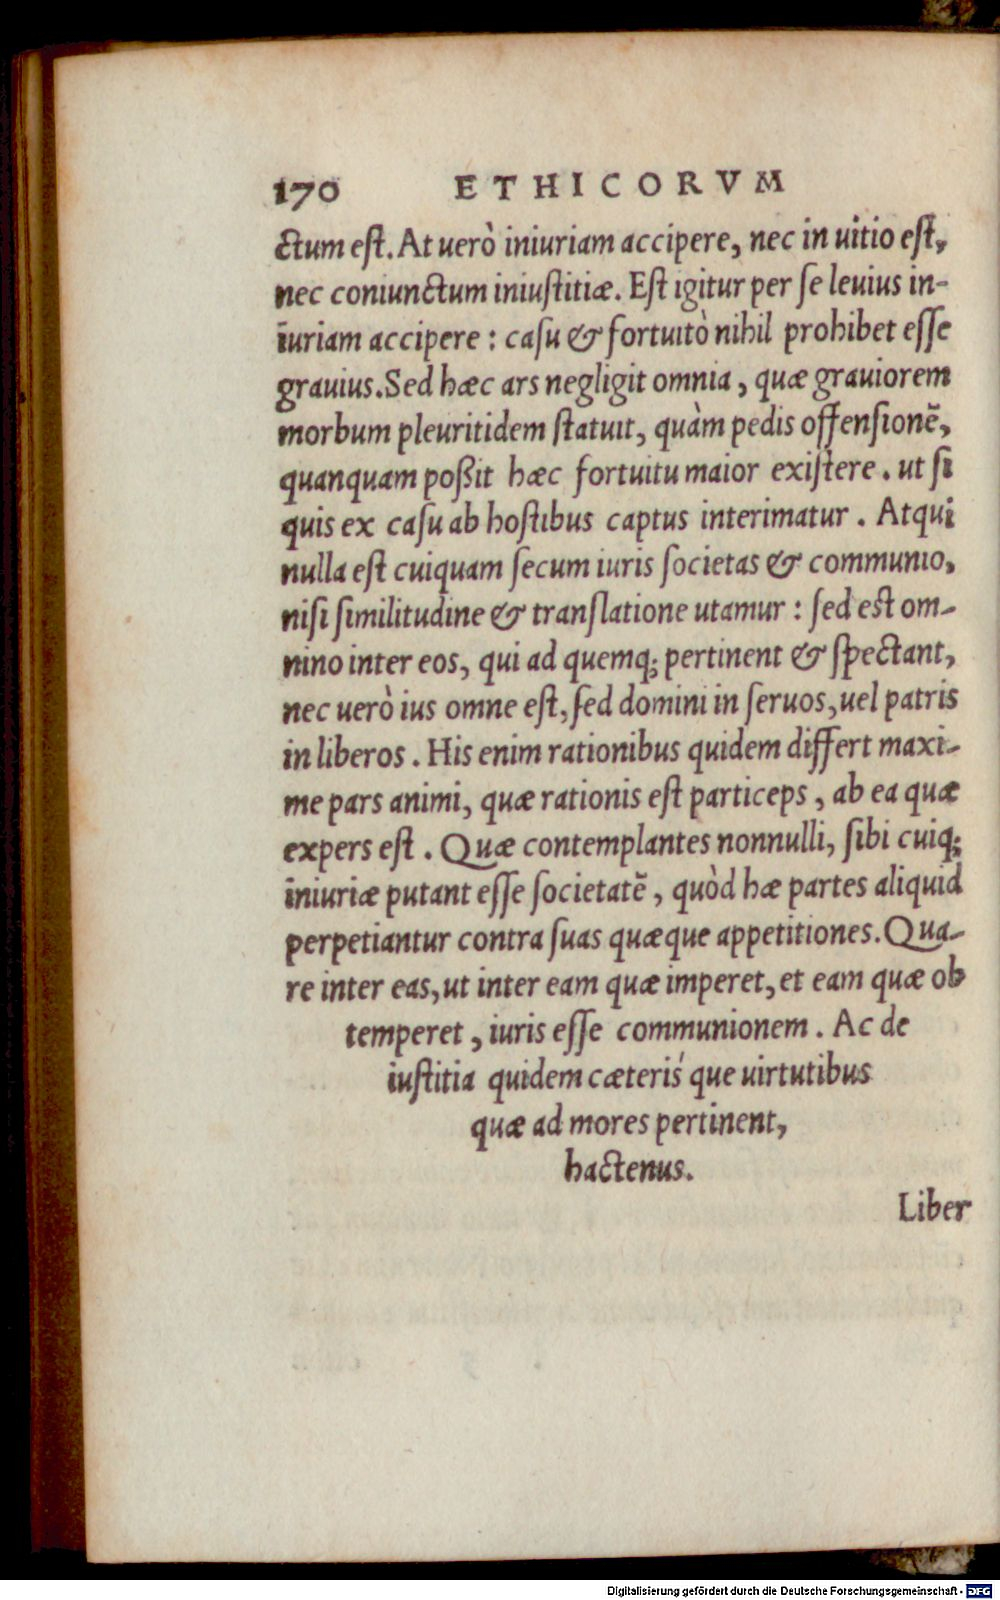 170 ETHICORVM
ctum est. At uerò iniuriam accipere, nec in uitio est,
nec coniunctum iniustitiæ. Est igitur per se leuius in-
iuriam accipere : casu & fortuitò nihil prohibet esse
grauius. Sed hæc ars negligit omnia, quæ grauiorem
morbum pleuritidem statuit, quàm pedis offensionē,
quanquam poßit hæc fortuitu maior existere. ut si
quis ex casu ab hostibus captus interimatur. Atqui
nulla est cuiquam secum iuris societas & communio,
nisi similitudine & translatione utamur : sed est om-
nino inter eos, qui ad quemq; pertinent & spectant,
nec uerò ius omne est, sed domini in seruos, uel patris
in liberos. His enim rationibus quidem differt maxi-
me pars animi, quæ rationis est particeps, ab ea quæ
expers est. Quæ contemplantes nonnulli, sibi cuiq;
iniuriæ putant esse societatē, quòd hæ partes aliquid
perpetiantur contra suas quæque appetitiones. Qua-
re inter eas, ut inter eam quæ imperet, et eam quæ ob
temperet, iuris esse communionem. Ac de
iustitia quidem cæteris´que uirtutibus
quæ ad mores pertinent,
hactenus.
Liber
Digitalisierung gefördert durch die Deutsche Forschungsgemeinschaft - DFG